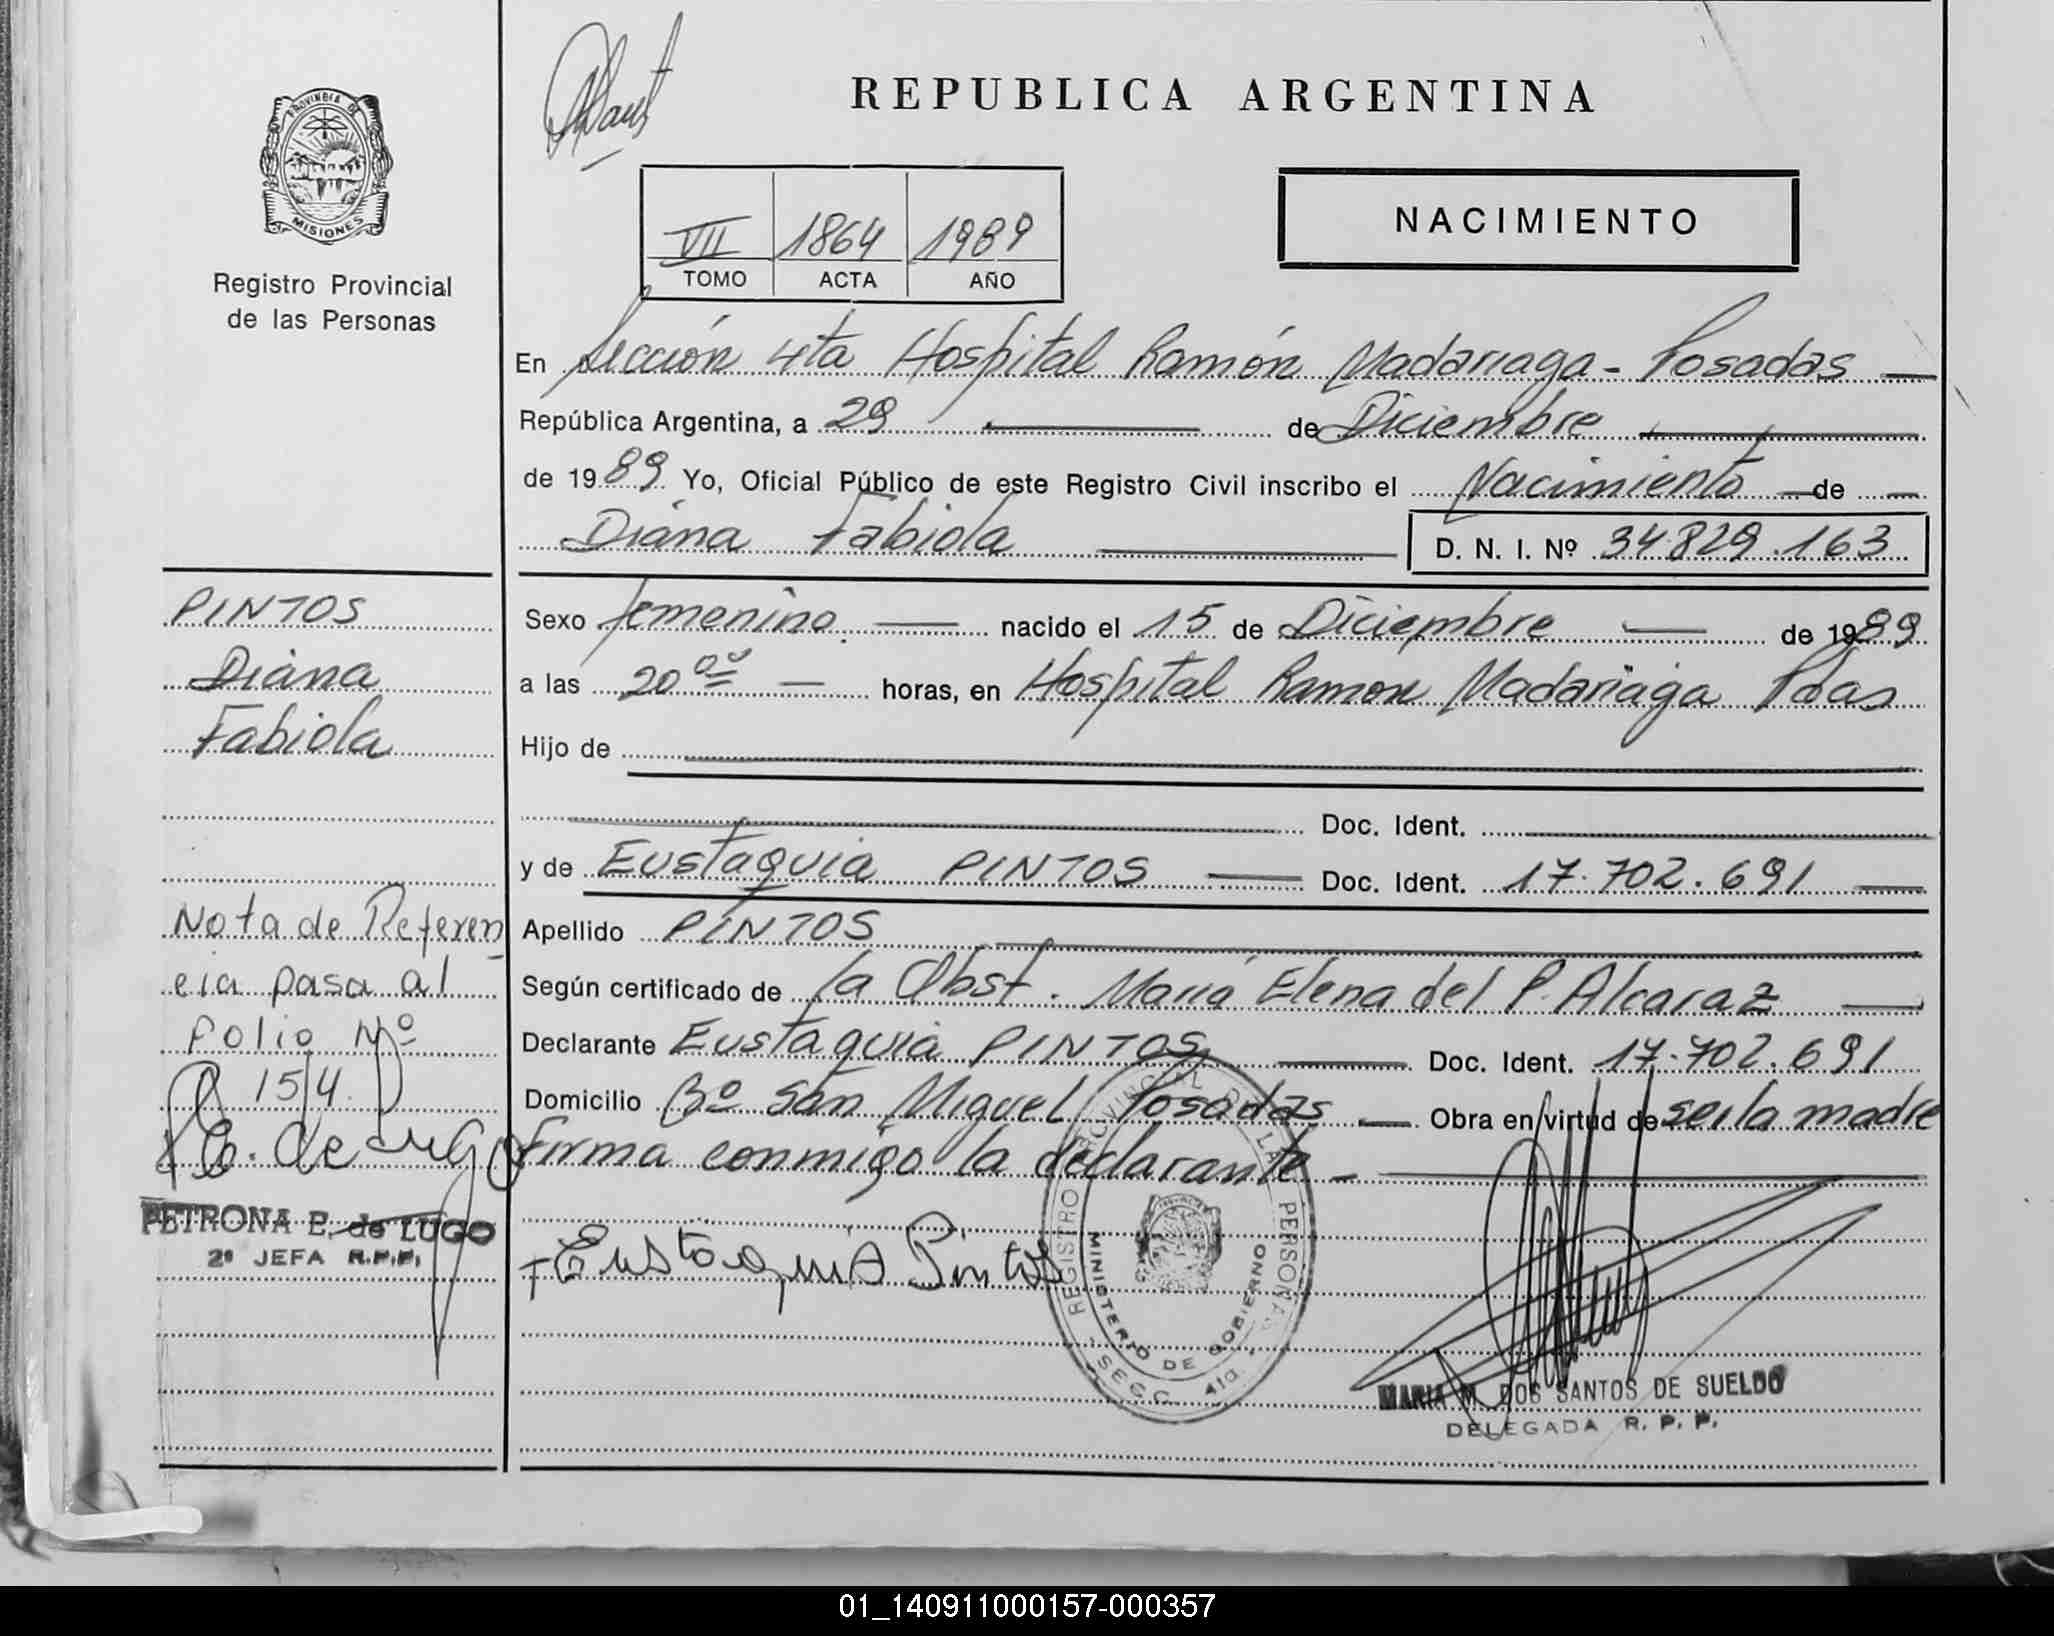 REPUBLICA ARGENTINA
PROVINCIA DE
MISIONES
Registro Provincial
de las Personas
VII 1864 1989
TOMO ACTA AÑO
NACIMIENTO
En Sección 4ta Hospital Ramón Madariaga - Posadas
República Argentina, a 29 de Diciembre
de 1989 Yo, Oficial Público de este Registro Civil inscribo el Nacimiento de
Diana Fabiola D. N. I. Nº 34.829.163
PINTOS
Diana
Fabiola
Sexo femenino. nacido el 15 de Diciembre de 1989
a las 20 00 horas, en Hospital Ramon Madariaga Pdas
Hijo de
Doc. Ident.
y de Eustaquia PINTOS Doc. Ident. 17.702.691
Apellido PINTOS
Según certificado de la Obst. María Elena del P. Alcaraz
Declarante Eustaquia PINTOS Doc. Ident. 17.702.691
Domicilio Bº San Miguel Posadas Obra en virtud de ser la madre
firma conmigo la declarante -
Nota de Referen
cia pasa al
Folio Nº
15/4
de Lugo
PETRONA E. de LUGO
2ª JEFA R.P.P.
Eustaquia Pintos
REGISTRO PROVINCIAL DE LAS PERSONAS
MINISTERIO DE GOBIERNO
- SECC. 4ta. -
MARIA M. DOS SANTOS DE SUELDO
DELEGADA R. P. P.
01_140911000157-000357